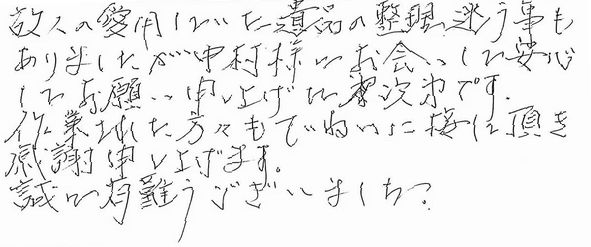 故人の愛用していた遺品の整理、迷う事も
ありましたが中村様にお会いして安心
してお願い申し上げた次第です。
作業された方々もていねいに接して頂き
感謝申し上げます。
誠に有難うございました。